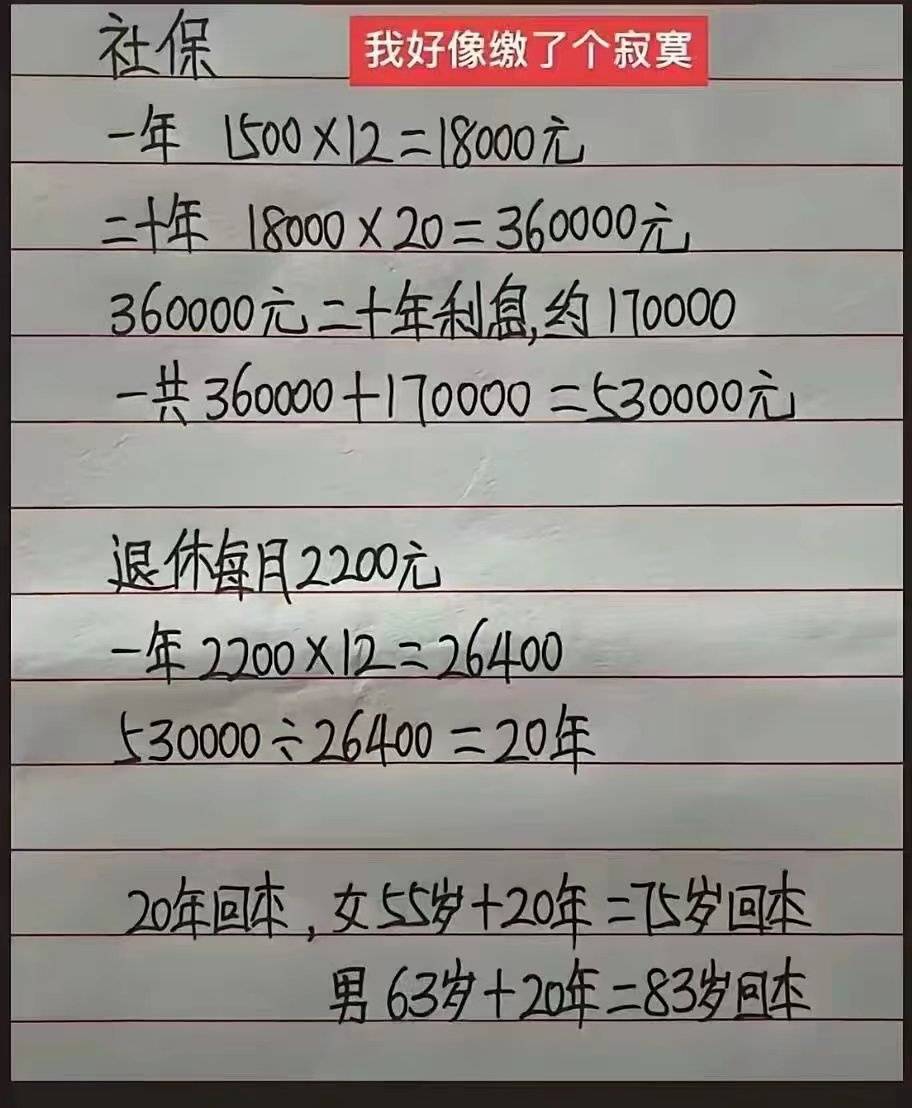 社保
我好像缴了个寂寞
一年 1500×12=18000元
二十年 18000×20=360000元
360000元二十年利息,约170000
一共360000+170000=530000元
退休每月2200元
一年2200×12=26400
530000÷26400=20年
20年回本,女55岁+20年=75岁回本
男63岁+20年=83岁回本